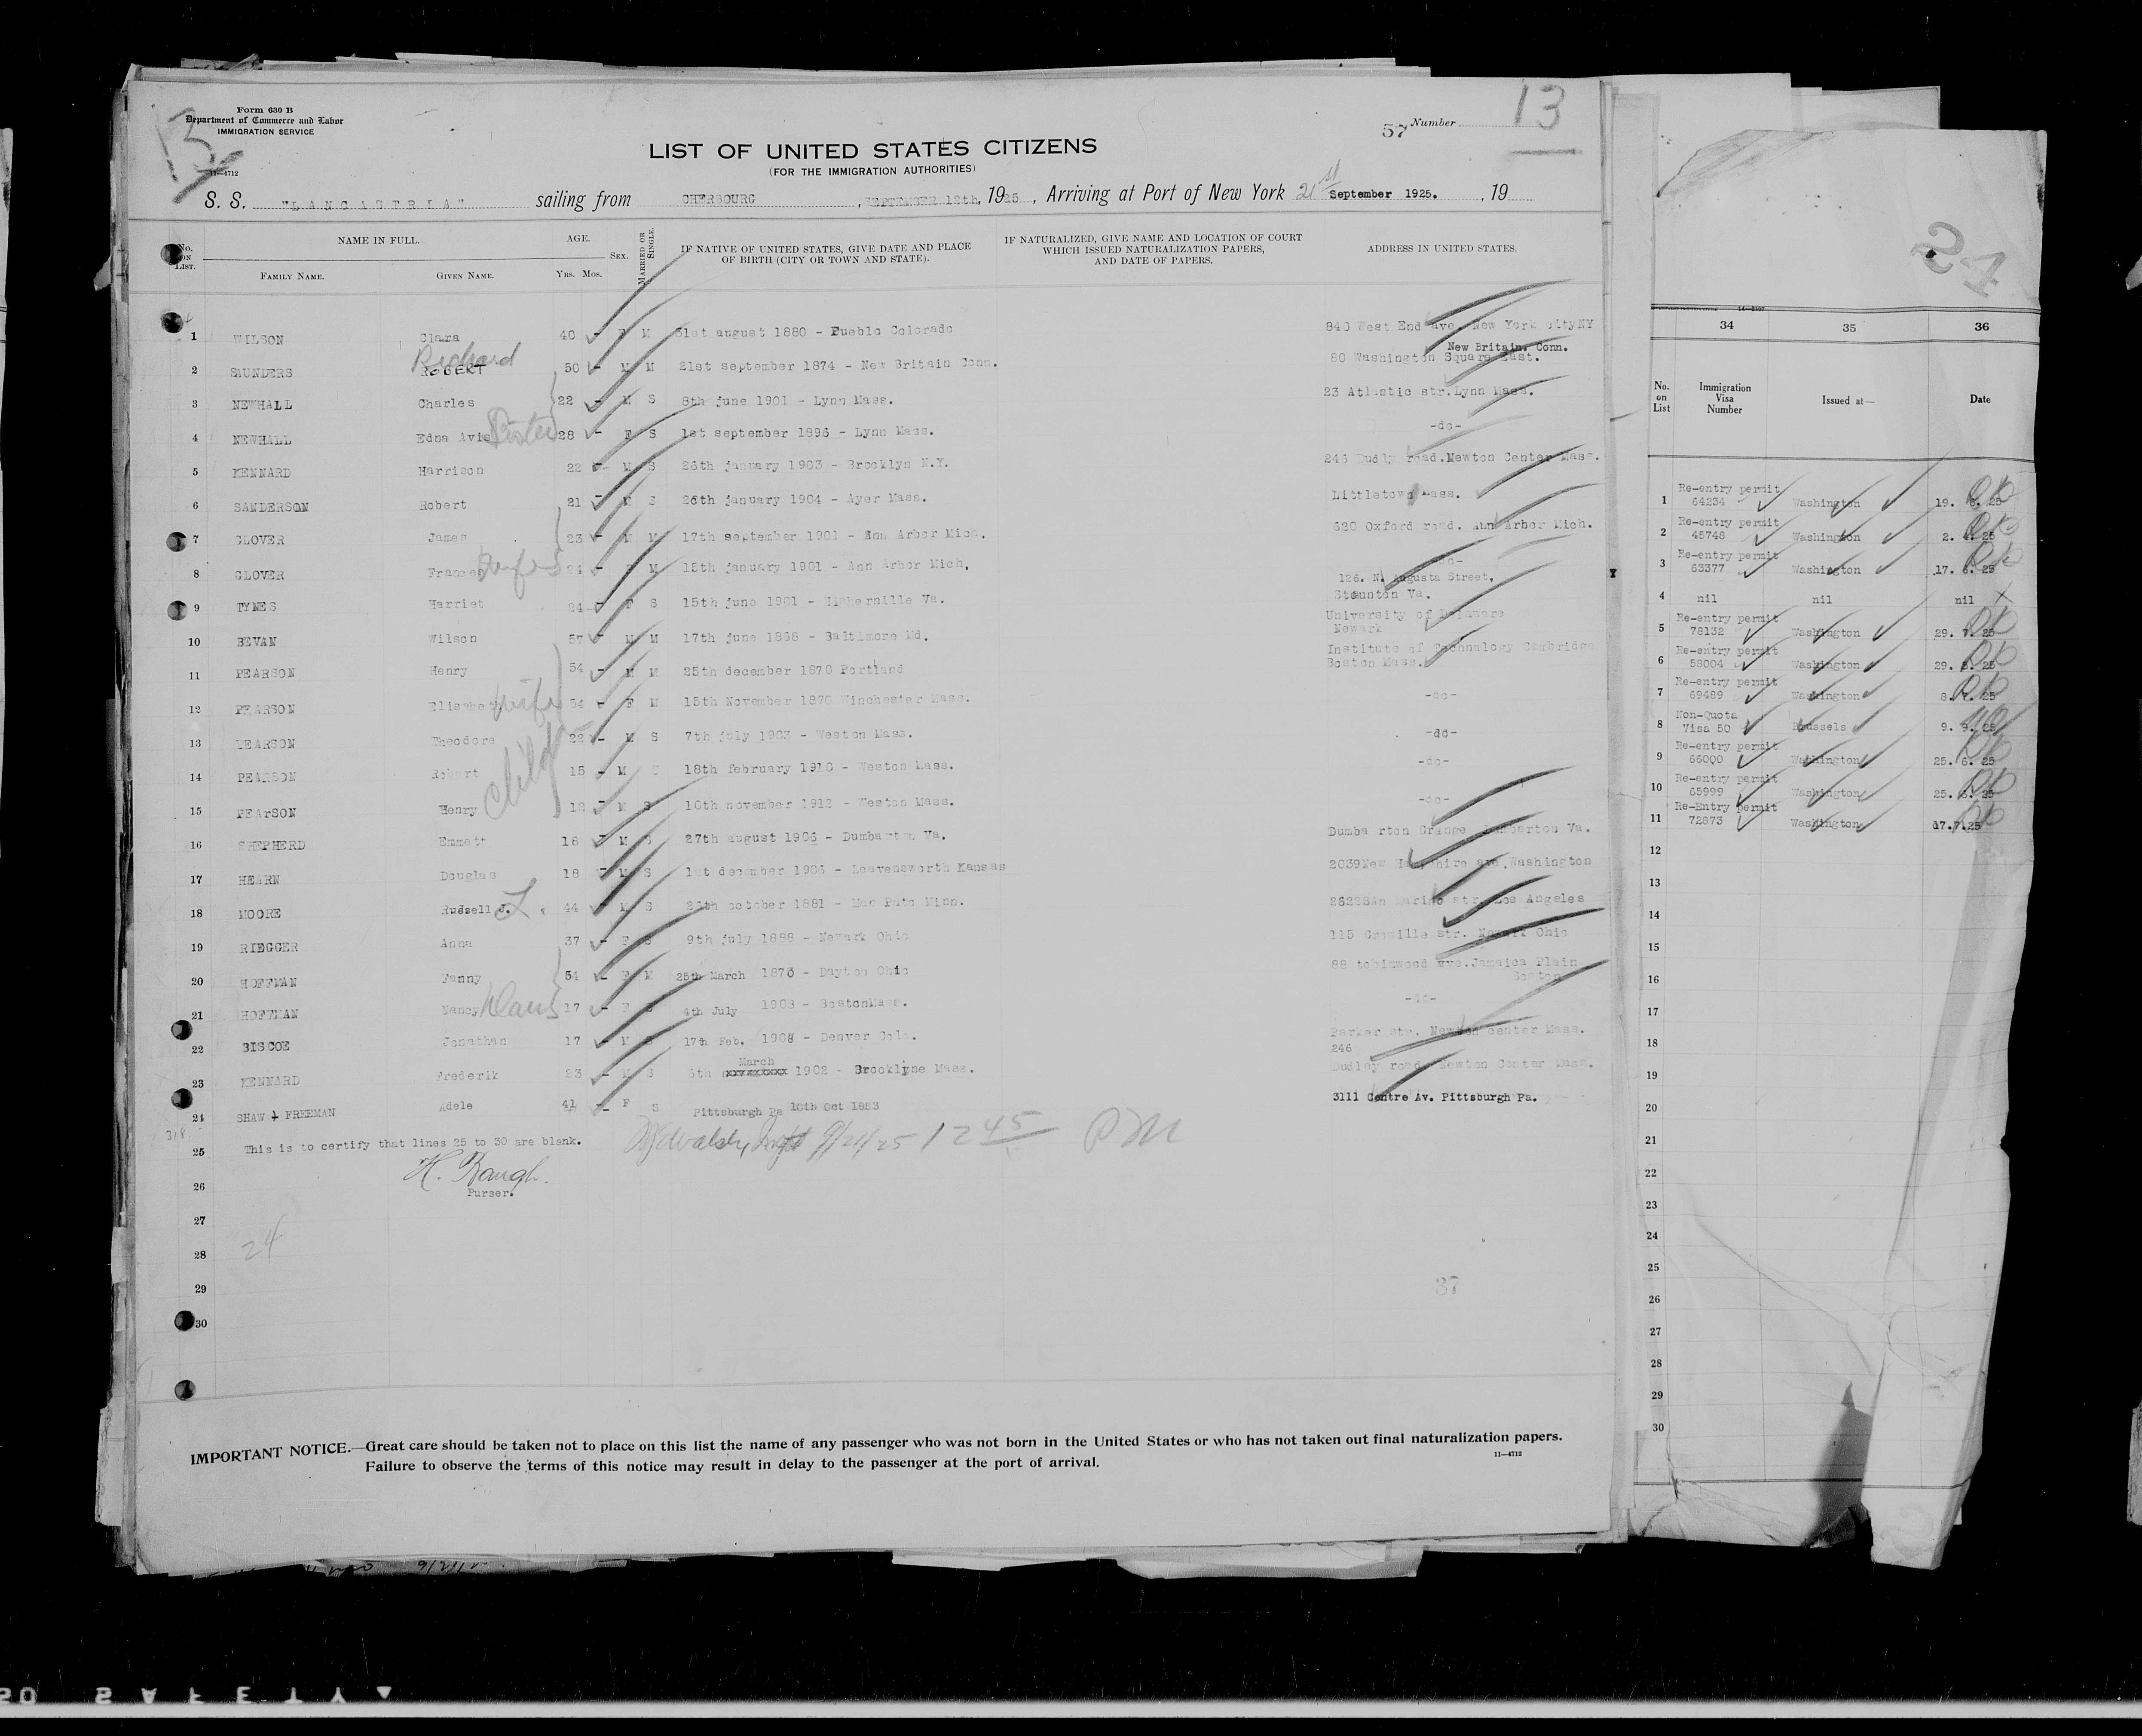 Form 630 B
Department of Commerce and Labor
IMMIGRATION SERVICE
11—4712
13
57 Number 13
LIST OF UNITED STATES CITIZENS
(FOR THE IMMIGRATION AUTHORITIES)
S. S. "LANCASTRIA" sailing from CHERBOURG, SEPTEMBER 12th, 1925, Arriving at Port of New York 21st September 1925. , 19
No. ON LIST. NAME IN FULL. AGE. SEX. MARRIED OR SINGLE. IF NATIVE OF UNITED STATES, GIVE DATE AND PLACE OF BIRTH (CITY OR TOWN AND STATE). IF NATURALIZED, GIVE NAME AND LOCATION OF COURT WHICH ISSUED NATURALIZATION PAPERS, AND DATE OF PAPERS. ADDRESS IN UNITED STATES.
FAMILY NAME. GIVEN NAME. YRS. MOS.
1 WILSON Clara 40 F M 31st august 1880 - Pueblo Colorado 840 West End ave. New York cityNY
2 SAUNDERS Richard ROBERT 50 M M 21st september 1874 - New Britain Conn. 80 Washington Square East. New Britain. Conn.
3 NEWHALL Charles 22 M S 8th june 1901 - Lynn Mass. 23 Atlantic str.Lynn Mass.
4 NEWHALL Edna Avis Sister 28 F S 1st september 1896 - Lynn Mass. -do-
5 KENNARD Harrison 22 M S 26th january 1903 - Brooklyn N.Y. 246 Dudly road.Newton Center Mass.
6 SANDERSON Robert 21 M S 26th january 1904 - Ayer Mass. Littletown Mass.
7 GLOVER James 23 M M 17th september 1901 - Ann Arbor Mich. 620 Oxford road. Ann Arbor Mich.
8 GLOVER Frances wife 24 F M 15th january 1901 - Ann Arbor Mich, -do-
9 TYNES Harriet 24 F S 15th june 1901 - Va. 126. N. Augusta Street, Staunton Va.
10 BEVAN Wilson 57 M M 17th june 1868 - Baltimore Md. University of Delaware Newark
11 PEARSON Henry 54 M M 25th december 1870 Portland Institute of Technology Cambridge Boston Mass.
12 PEARSON Elisabeth wife 54 F M 15th November 1870 Winchester Mass. -do-
13 PEARSON Theodore 22 M S 7th july 1903 - Weston Mass. -do-
14 PEARSON Robert child 15 M S 18th february 1910 - Weston Mass. -do-
15 PEArSON Henry 12 M S 10th november 1912 - Weston Mass. -do-
16 SHEPHERD Emmett 18 M S 27th august 1906 - Dumbarton Va. Dumba rton Grange Dumbarton Va.
17 HEARN Douglas 18 M S 1st december 1906 - Leavensworth Kansas 2039New Hampshire ave.Washington
18 MOORE Russell J. L. 44 M S 26th october 1881 - Minn. 2622SAn Marino str. Los Angeles
19 RIEGGER Anna 37 F S 9th july 1888 - Newark Ohio 115 Granville str. Newark Ohio
20 HOFFMAN Fanny 54 F M 25th March 1870 - Dayton Ohio 88 ave.Jamaica Plain Boston
21 HOFFMAN Nancy Daus 17 F S 4th July 1908 - BostonMass. -do-
22 BISCOE Jonathan 17 M S 17th Feb. 1908 - Denver Colo. Parker str. Newton center Mass.
23 KENNARD Frederik 23 M S 6th March 1902 - Brooklyne Mass. 246 Dudley road. Newton Center Mass.
24 SHAW + FREEMAN Adele 41 F S Pittsburgh Pa 10th Oct 1883 3111 Centre Av. Pittsburgh Pa.
318
25 This is to certify that lines 25 to 30 are blank. 9/21/25 1245 PM
H. Baugh.
26 Purser.
27
28 24
29 37
30
IMPORTANT NOTICE.—Great care should be taken not to place on this list the name of any passenger who was not born in the United States or who has not taken out final naturalization papers.
Failure to observe the terms of this notice may result in delay to the passenger at the port of arrival.
11—4712
24
34 35 36
No. on List Immigration Visa Number Issued at— Date
1 Re-entry permit 64234 Washington 19. 6. 25
2 Re-entry permit 45748 Washington 2. 4. 25
3 Re-entry permit 63377 Washington 17. 6. 25
4 nil nil nil
5 Re-entry permit 78132 Washington 29. 7. 25
6 Re-entry permit 58004 Washington 29. 5. 25
7 Re-entry permit 69489 Washington 8. 7. 25
8 Non-Quota Visa 50 Brussels 9. 9. 25
9 Re-entry permit 66000 Washington 25. 6. 25
10 Re-entry permit 65999 Washington 25. 6. 25
11 Re-Entry permit 72873 Washington 17.7.25
12
13
14
15
16
17
18
19
20
21
22
23
24
25
26
27
28
29
30
SAFETY